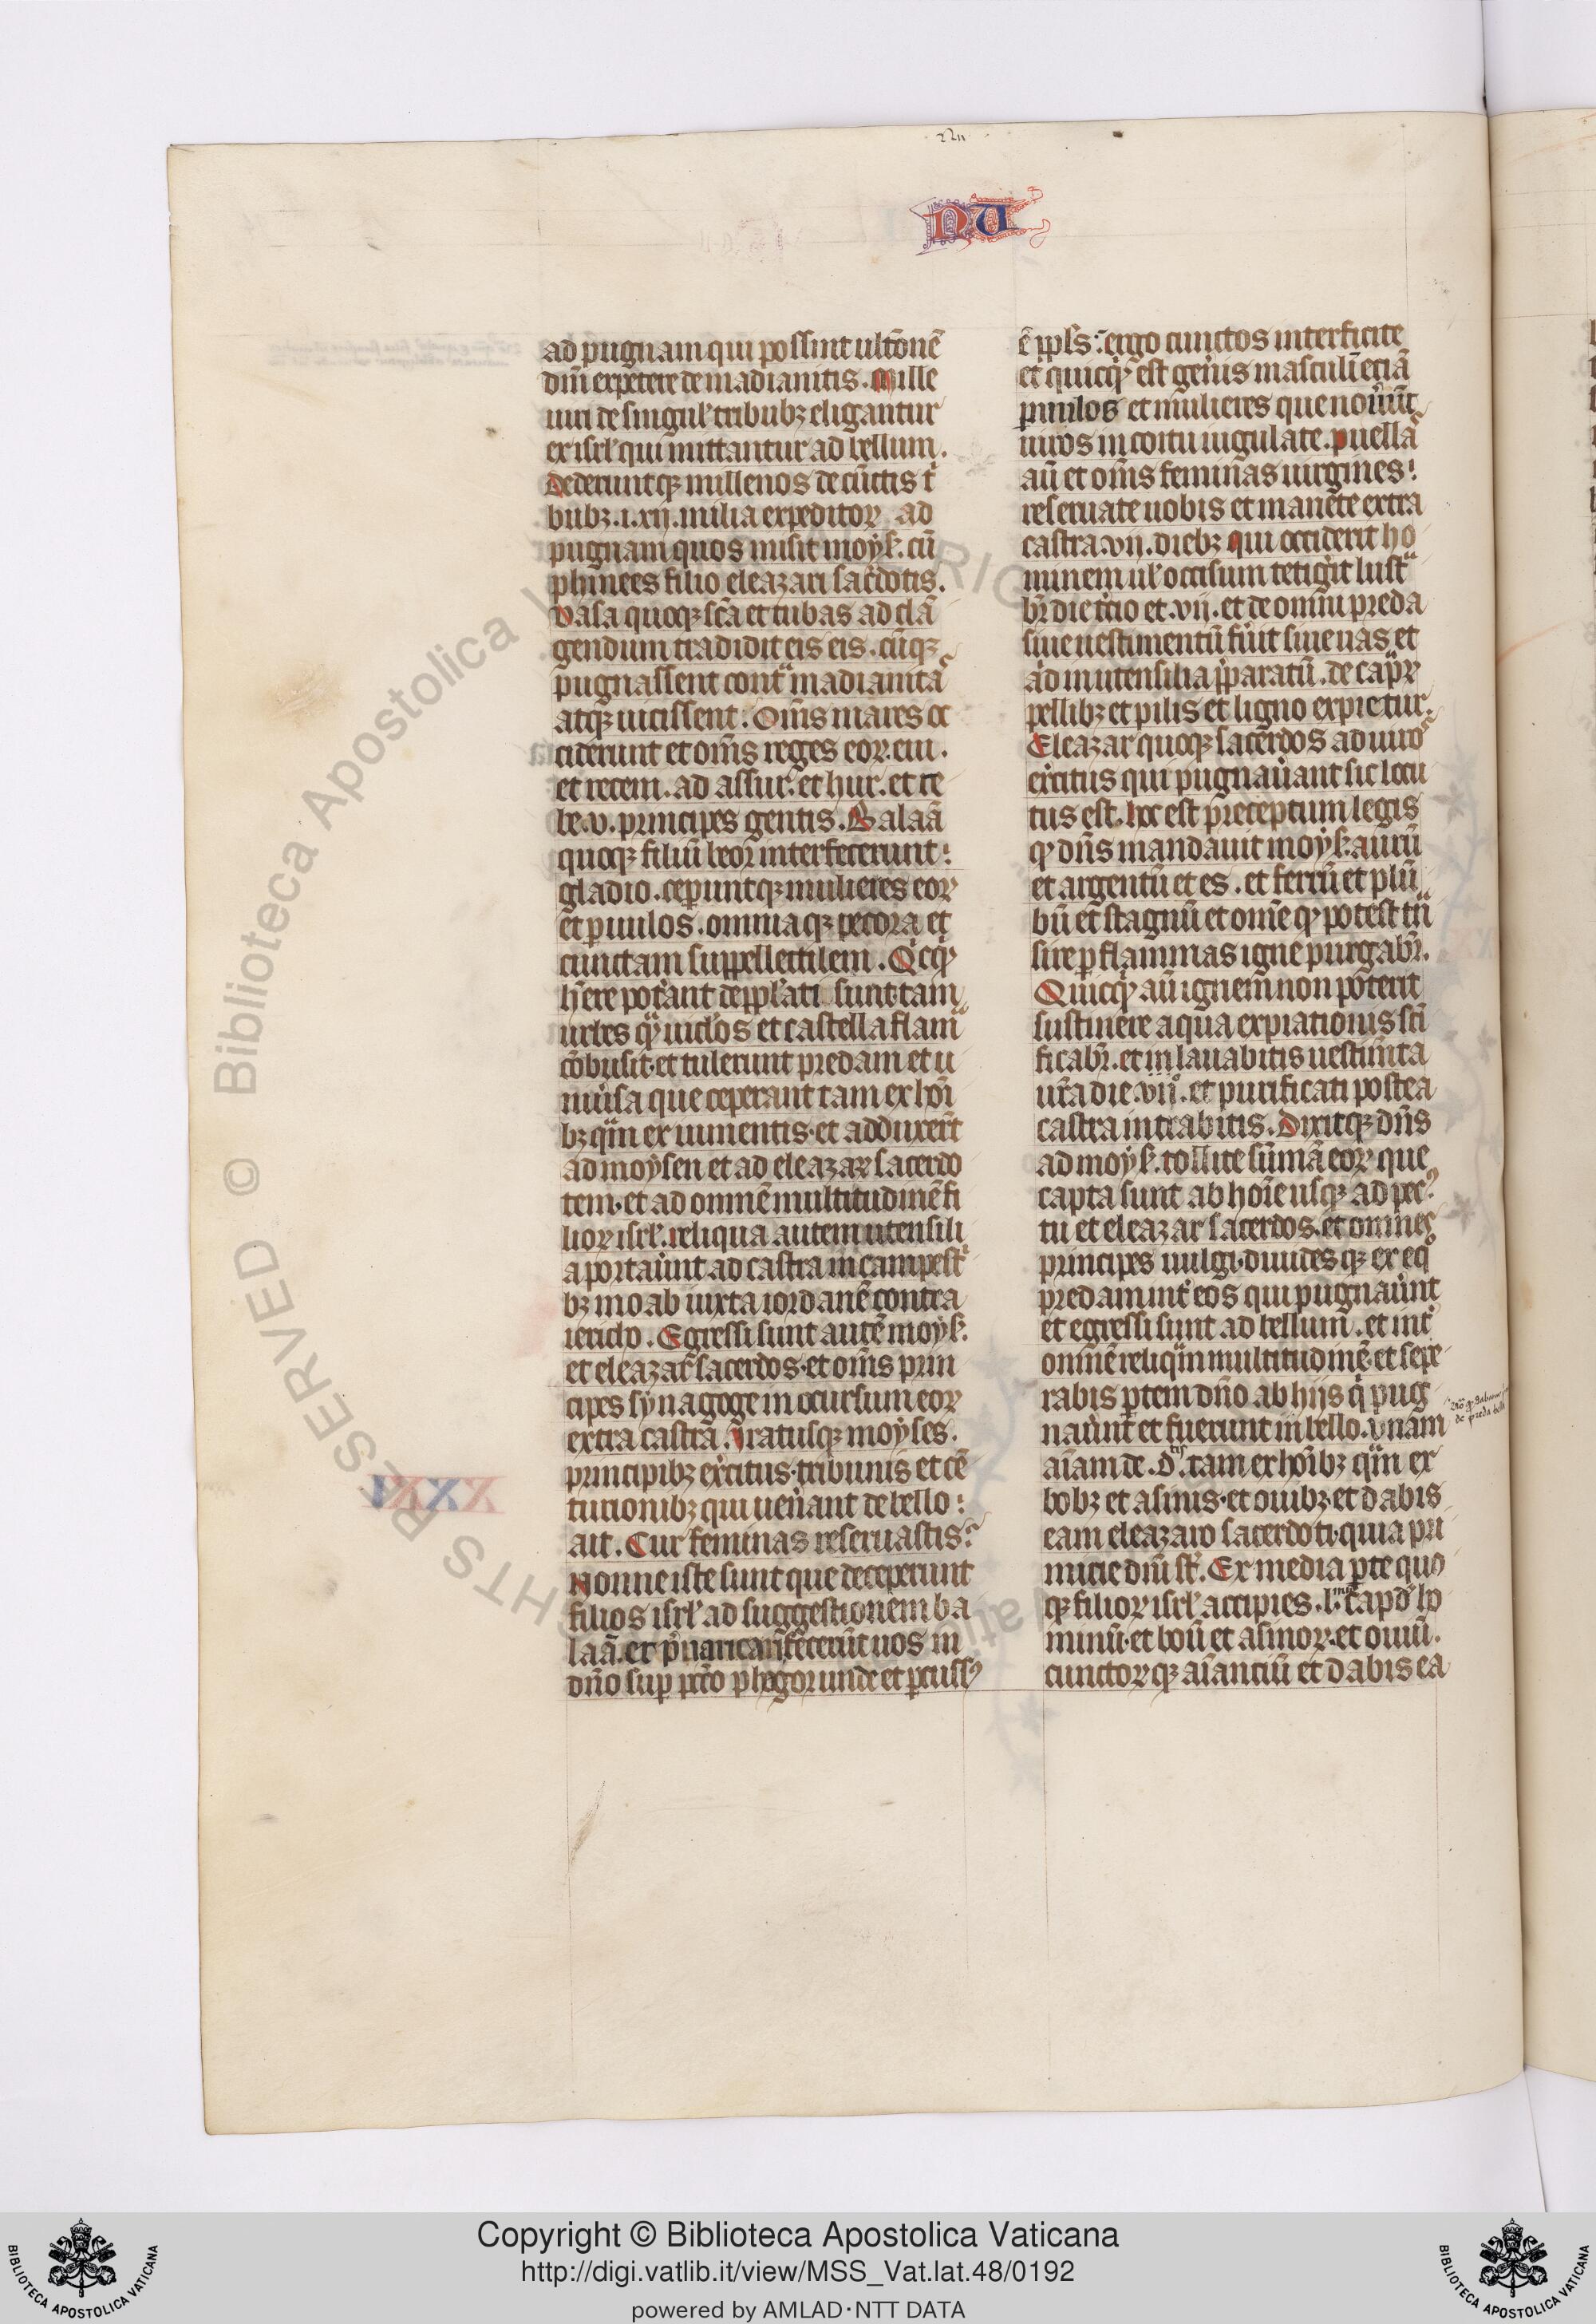 22u
NU
ad pugnam qui possint ultōnē
dn̄i expetere de madianitis. Mille
uiri de singul' tribubꝫ eligantur
ex isrl' qui mittantur ad bellum.
Dederuntqꝫ millenos de cūctis t'
bubꝫ .i. xii. milia expeditoꝝ ad
pugnam quos misit moẏs'. cū
phinees filio eleazari sac̄dotis.
Vasa quoqꝫ sc̄a et tubas ad clā
gendum tradidit eis eis. cūqꝫ
pugnassent contᵃ madianitaˢ
atqꝫ uicissent. Om̄s mares oc
ciderunt et om̄s reges eoꝝ. eui.
et recem. ad assur. et hur. et re
be. v. principes gentis. Balaā
quoqꝫ filiū beor interfecerunt:
gladio. ceperuntqꝫ mulieres eoꝝ
et ꝑuulos. omniaqꝫ pecora et
cunctam suppellectilem. Qͥcqͥd
h̄ere pot'ant depp̄lati sunt tam
urbes qᵃ uiclos et castella flamᵃ
cōbusit. et tulerunt predam et u
niu'sa que ceperant tam ex hoī
bꝫ qᵃm ex iumentis. et adduxer̄t
ad moẏsen et ad eleazaꝝ sacerdo
tem. et ad omnē multitudinē fi
lioꝝ isrl'. reliqua autem utensili
a portau'unt ad castra in campestⁱ
bꝫ moab iuxta iordanē contra
iericho. Egressi sunt autē moẏs'.
et eleazar' sacerdos. et om̄s prin
cipes sẏnagoge in occursum eoꝝ
extra castra. Iratusqꝫ moẏses.
principibꝫ exc̄itus. tribunis et cē
turionibꝫ qui uen'ant de bello:
ait. Cur feminas reseruastis?
Nonne iste sunt que deceperunt
filios isrl' ad suggestionem ba
laā. et p̄uaricari fecerūt uos in
dn̄o suꝑ pctō phogor unde et ꝑcussꝰ
XXXI
ē ppl's: ergo cunctos interficite
et quicqͥd est gen'is masculī eciā
ꝑuulos et mulieres que nou'ūt
uiros in coitu iugulate. puellaˢ
aū et om̄s feminas uirgines:
reseruate uobis et manete extra
castra. vii. diebꝫ qui occiderit ho
minem ul' occisum tetigit lustᵃ
bit' die tc̄io et. vii. et de omni preda
siue uestimentū fu'it siue uas et
ad in utensilia p̄paratū. de capᵃꝝ
pellibꝫ et pilis et ligno expietur.
Eleazar quoqꝫ sacerdos ad uiroˢ
exc̄itus qui pugnau'ant sic locu
tus est. hoc est preceptum legis
qͦd dn̄s mandauit moẏs'. aurū
et argentū et es. et ferrū et plū
bū et stagnū et ome qͦd potest tᵃn
sire ꝑ flammas igne purgabit'.
Quicqͥd aū ignem non poterit
sustinere aqua expiationis sc̄i
ficabit'. et in lauabitis uestim̄ta
ur̄a die. viiͦ. et purificati postea
castra intrabitis. Dixitqꝫ dn̄s
ad moẏs'. tollite sūmā eoꝝ que
capta sunt ab hoīe usqꝫ ad pecꝰ
tu et eleazar sacerdos. et omnes
principes uulgi. diuidesqꝫ ex eqͦ
predam int' eos qui pugnau'unt
et egressi sunt ad bellum. et int'
omnē reliqᵃm multitudinē. et sepe
rabis ꝑtem dn̄o ab hijs qͥ pug
nau'unt et fuerunt in bello. vnam
aīam de. dᵗⁱˢ. tam ex hoībꝫ qᵃm ex
bobꝫ et asinis. et ouibꝫ. et dabis
eam eleazaro sacerdoti. quia pri
micie dn̄i st'. Ex media ꝑte quo
qꝫ filioꝝ isrl' accipies. lᵐᵘ. capd' ho
minū. et boū et asinoꝝ. et ouiū.
cunctoꝝqꝫ aīantiū et dabis ea
de preda belli
Copyright © Biblioteca Apostolica Vaticana
http://digi.vatlib.it/view/MSS_Vat.lat.48/0192
powered by AMLAD·NTT DATA
BIBLIOTECA APOSTOLICA VATICANA
BIBLIOTECA APOSTOLICA VATICANA